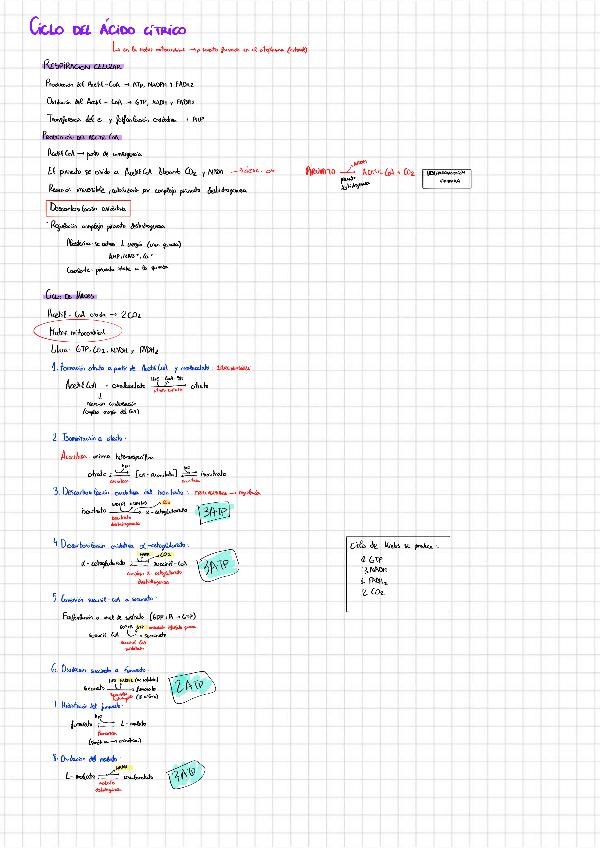 CICLO DEL ÁCIDO CÍTRICO
en la matriz mitocondrial → piruvato formado en el citoplasma (citosol)
RESPIRACIÓN CELULAR
Producción del Acetil-CoA → ATP, NADH y FADH2
Oxidación del Acetil-CoA → GTP, NADH y FADH2
Transferencia del e- y fosforilación oxidativa → ATP
PRODUCCIÓN DEL ACETIL CoA
Acetil CoA → punto de convergencia
El piruvato se oxida a Acetil CoA liberando CO2 y NADH
PIRUVATO → ACETIL-CoA + CO2
NADH
piruvato deshidrogenasa
DESCARBOXILACIÓN OXIDATIVA
Reacción irreversible, catalizada por complejo piruvato deshidrogenasa
Descarboxilación oxidativa
Regulación complejo piruvato deshidrogenasa
CICLO DE KREBS
Acetil-CoA oxida → 2CO2
Matriz mitocondrial
Libera: GTP, CO2, NADH y FADH2
1. Formación citrato a partir de Acetil CoA y oxalacetato: irreversible
Acetil CoA + oxalacetato → citrato
H2O CoA-SH
citrato sintasa
reacción condensación
2. Isomerización a citrato.
Aconitasa
citrato [cis-aconitato] isocitrato
H2O H2O
aconitasa aconitasa
3. Descarboxilación oxidativa del isocitrato:
isocitrato → α-cetoglutarato
CO2
isocitrato deshidrogenasa
3ATP
4. Descarboxilación oxidativa α-cetoglutarato.
α-cetoglutarato → succinil-CoA
NADH CO2
complejo α-cetoglutarato deshidrogenasa
3ATP
Ciclo de Krebs se produce:
1 GTP
3 NADH
1 FADH2
2 CO2
5. Conversión succinil-CoA a succinato.
Fosforilación a nivel de sustrato (GDP + Pi → GTP)
succinil CoA → succinato
succinil CoA sintetasa
6. Oxidación succinato a fumarato.
succinato → fumarato
succinato deshidrogenasa
2ATP
7. Hidratación del fumarato.
fumarato → L-malato
H2O
fumarasa
8. Oxidación del malato.
L-malato → oxalacetato
NADH
malato deshidrogenasa
3ATP